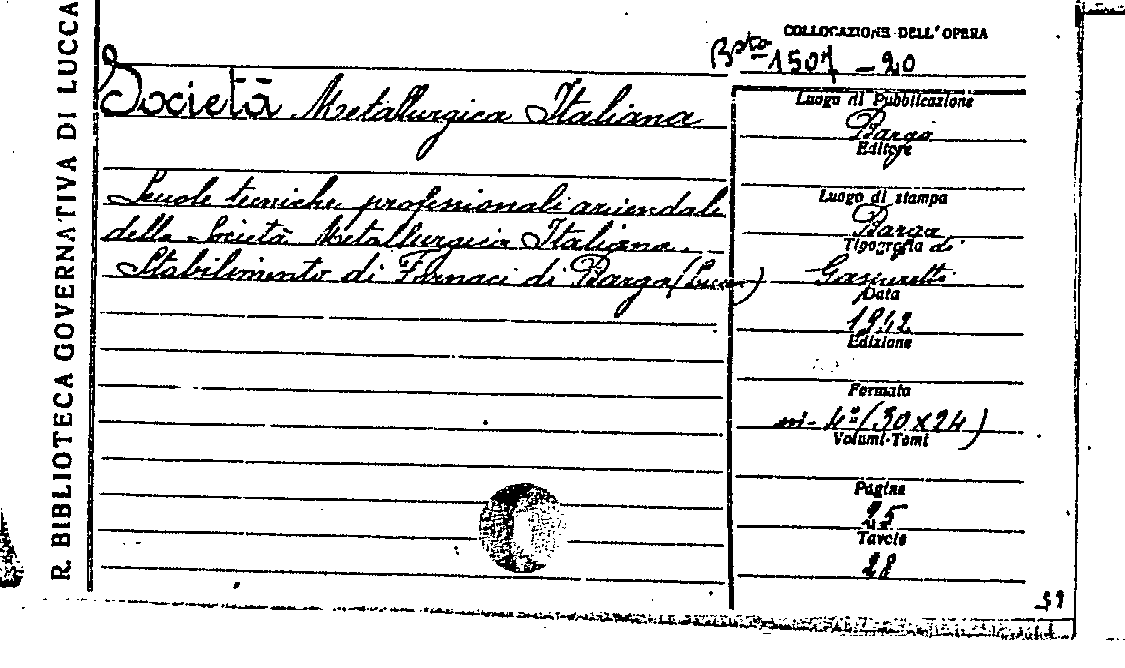 R. BIBLIOTECA GOVERNATIVA DI LUCCA
COLLOCAZIONE DELL'OPERA
Bsta 1507 - 20
Società Metallurgica Italiana
Scuole tecniche professionali aziendale
della Società Metallurgica Italiana.
Stabilimento di Fornaci di Barga (Lucca)
Luogo di Pubblicazione
Barga
Editore
Luogo di stampa
Barga
Tipografia di
Gasperetti
Data
1942
Edizione
Formato
in- 4º (30x24)
Volumi-Tomi
Pagine
25
Tavole
28